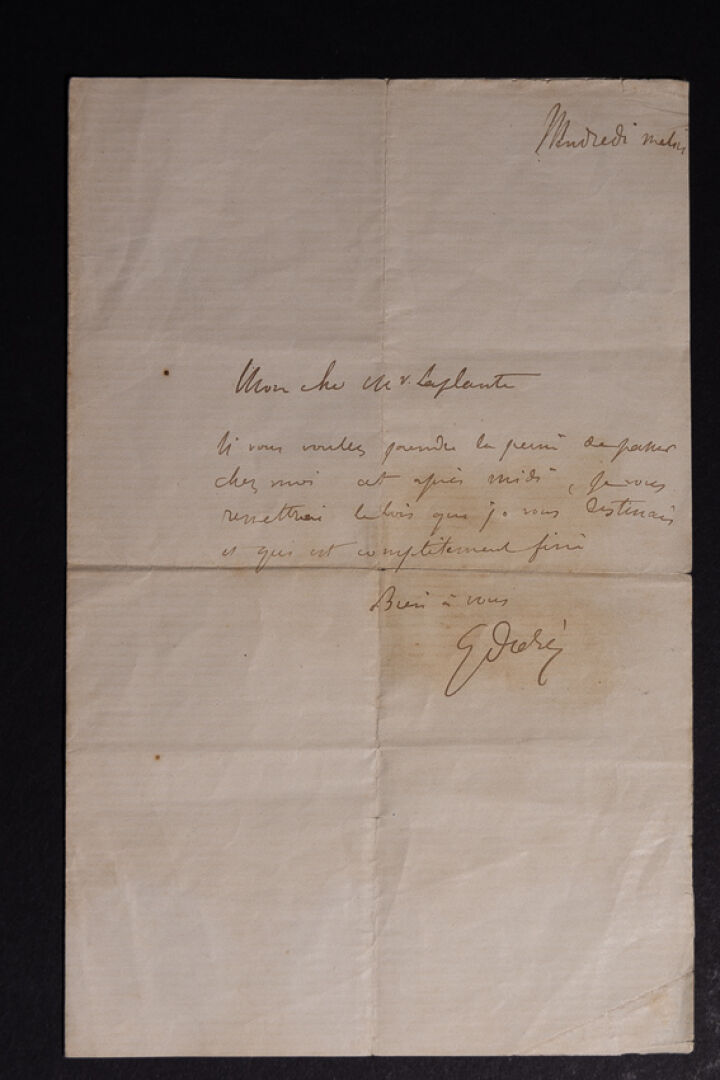 Vendredi matin
Mon cher Mr. Laplante
Si vous voulez prendre la peine de passer
chez moi cet après midi, je vous
remettrai le bois que je vous destinais
et qui est complètement fini
Bien à vous
G Doré